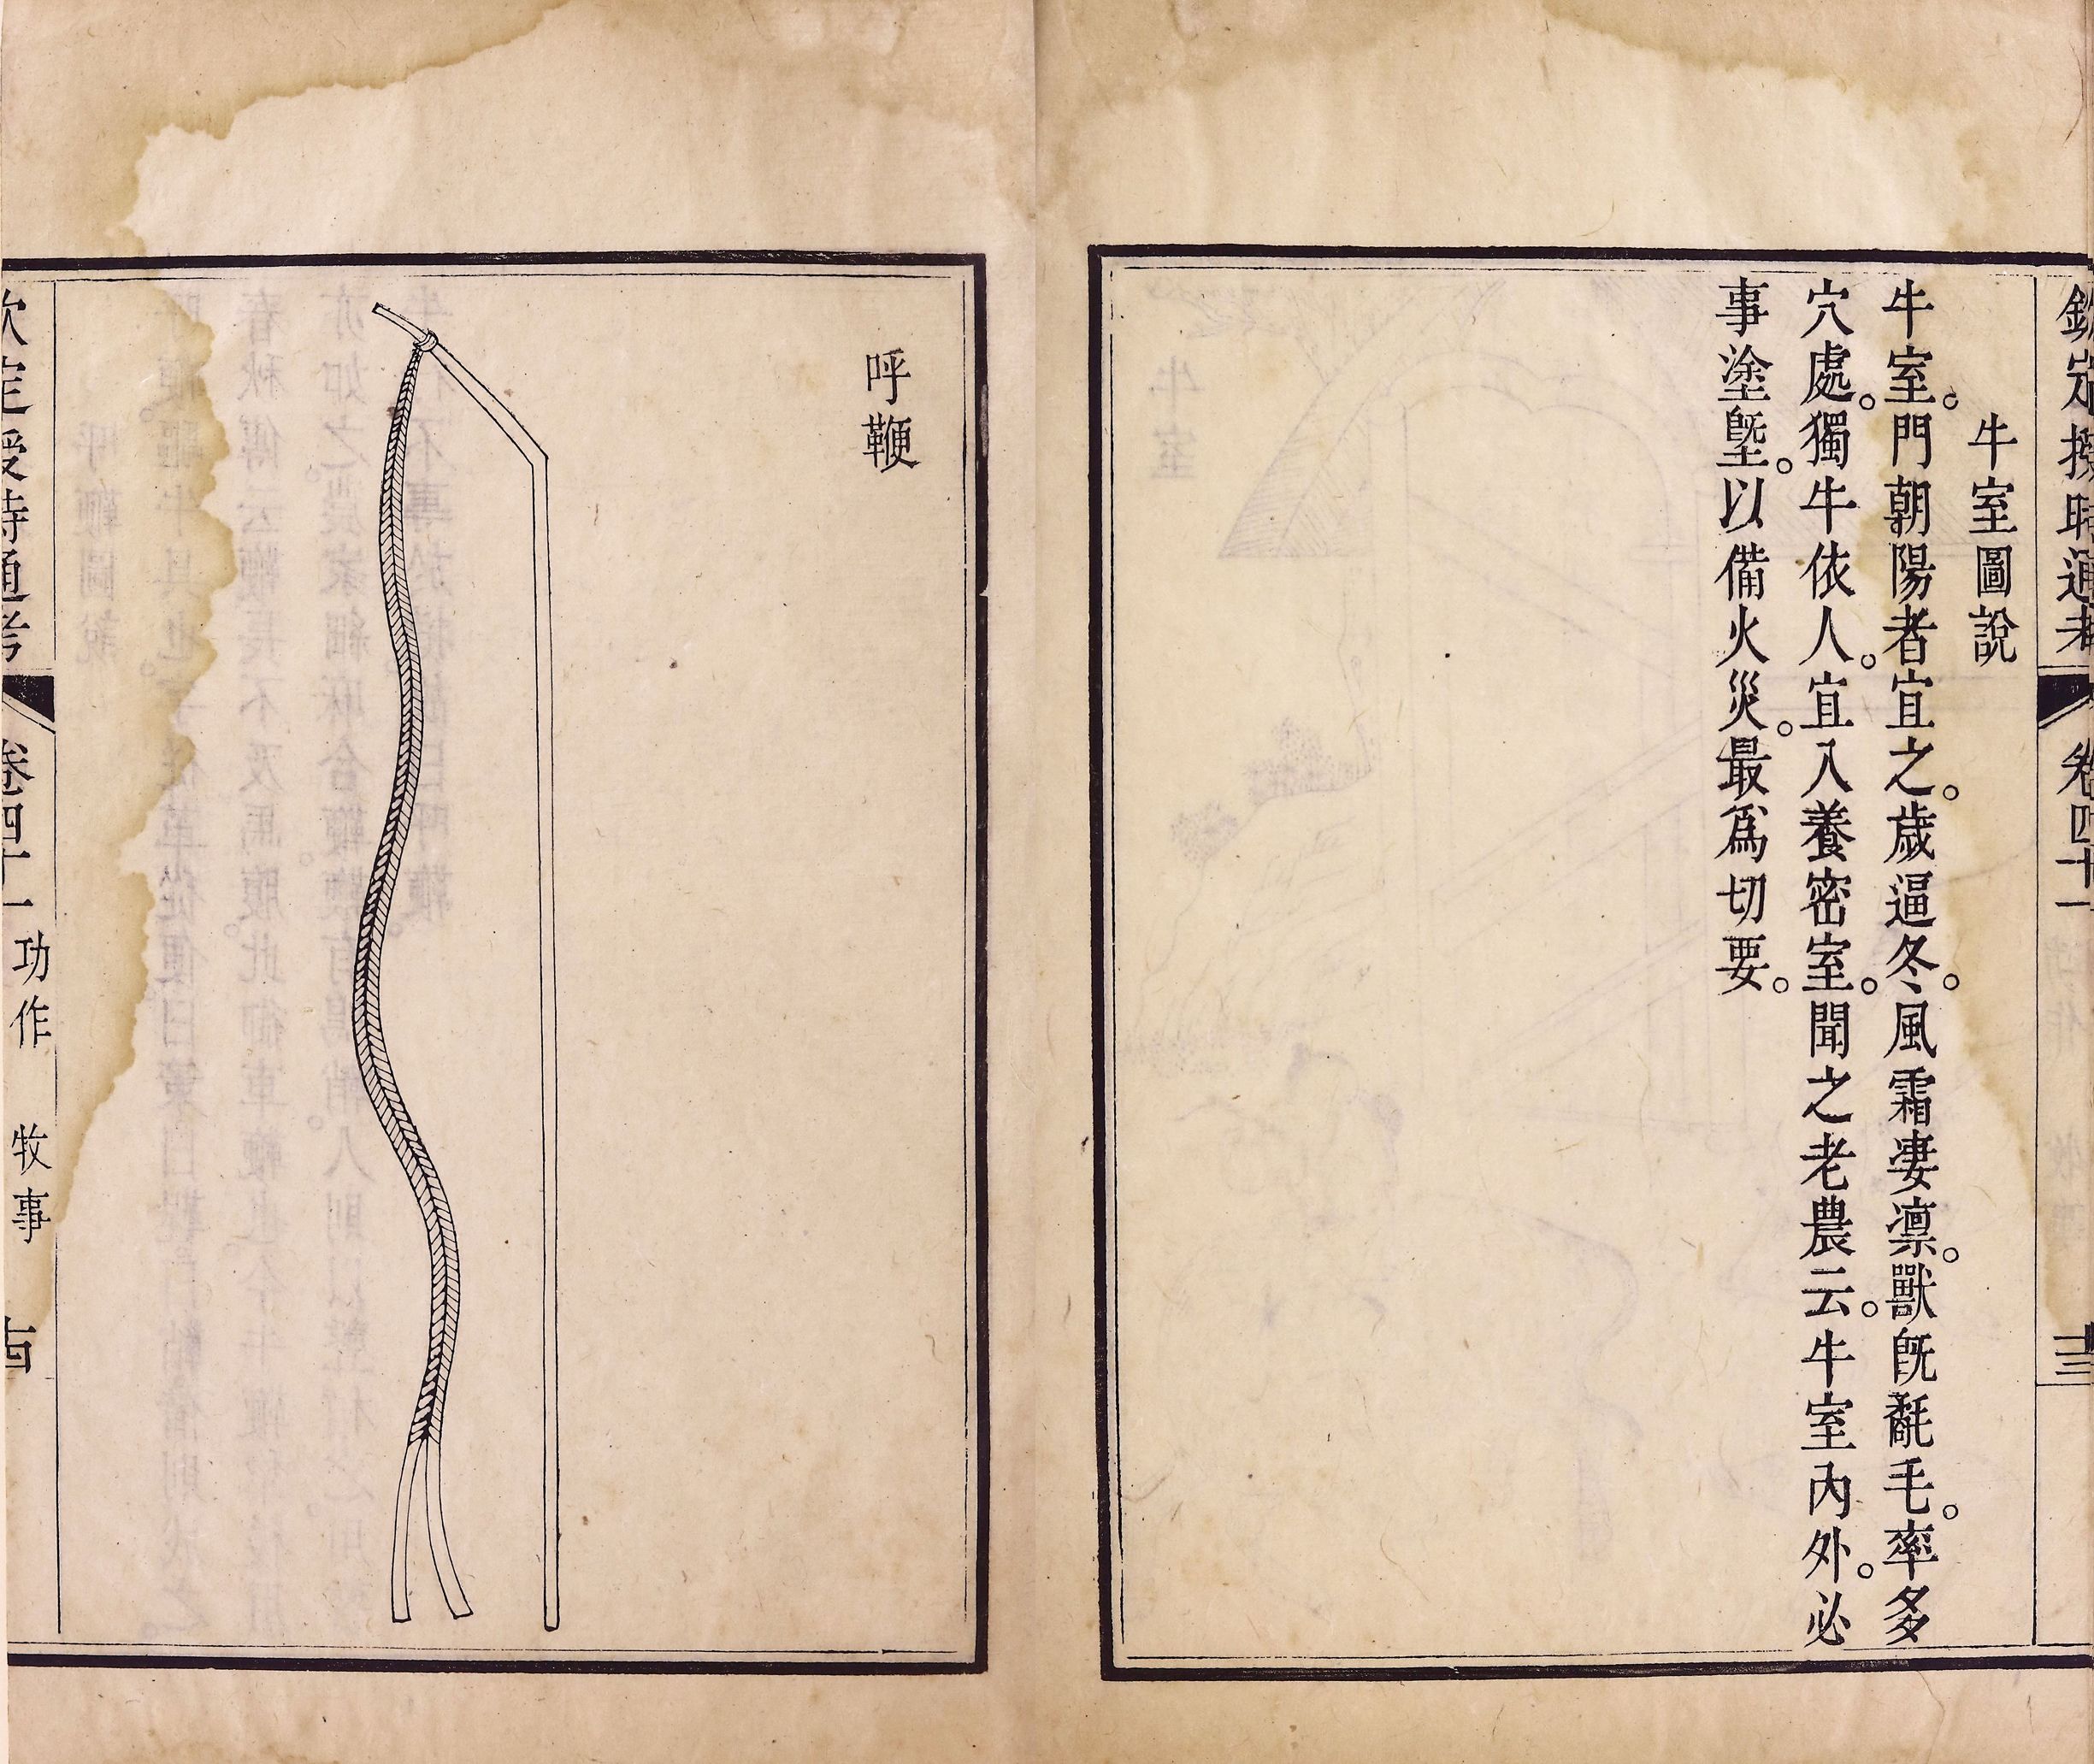 欽定授時通考 卷四十一 十三
牛室圖說
牛室。門朝陽者宜之。歲逼冬。風霜凄凛。獸旣氄毛。率多
穴處。獨牛依人。宜入養密室。聞之老農云。牛室內外。必
事塗墍。以備火災。最爲切要。
呼鞭
欽定授時通考 卷四十一 功作 牧事 十四